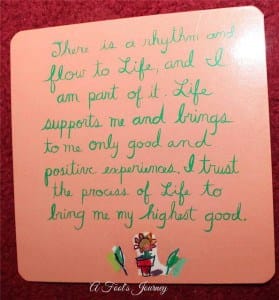 There is a rhythm and
flow to Life, and I
am part of it. Life
supports me and brings
to me only good and
positive experiences. I trust
the process of Life to
bring me my highest good.
A Fool's Journey